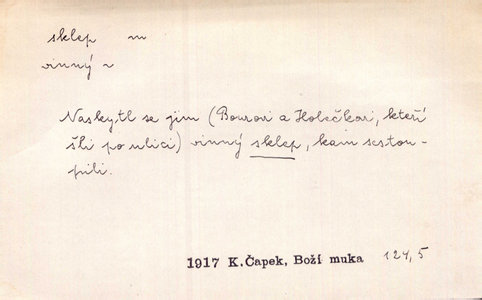 sklep m
vinný ~
Naskytl se jim (Bourovi a Holečkovi, kteří
šli po ulici) vinný sklep, kam sestou-
pili.
1917 K.Čapek, Boží muka 124,5